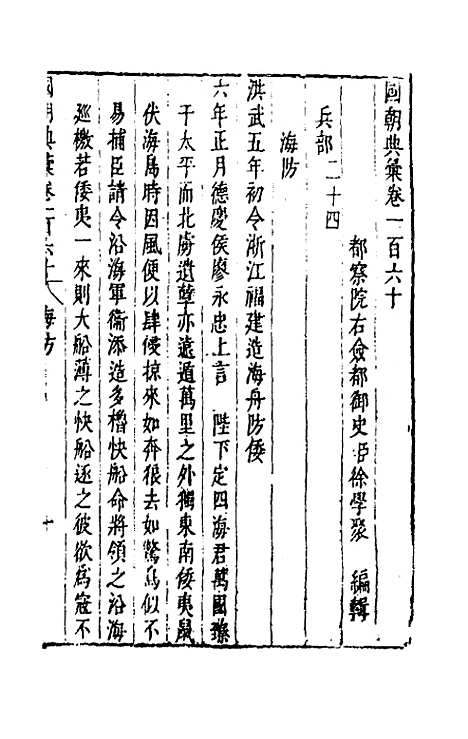 國朝典彙卷一百六十
都察院右僉都御史臣徐學聚 編輯
兵部二十四
海防
洪武五年初令浙江福建造海舟防倭
六年正月德慶侯廖永忠上言 陛下定四海君萬國
于太平而北虜遺孽亦遠遁萬里之外獨東南倭夷鼠
伏海島時因風便以肆侵掠來如奔狼去如驚鳥似不
易捕臣請令沿海軍衞添造多櫓快船命將領之沿海
廵檄若倭夷一來則大船薄之快船逐之彼欲爲冦不
國朝典彙卷一百六十 海防